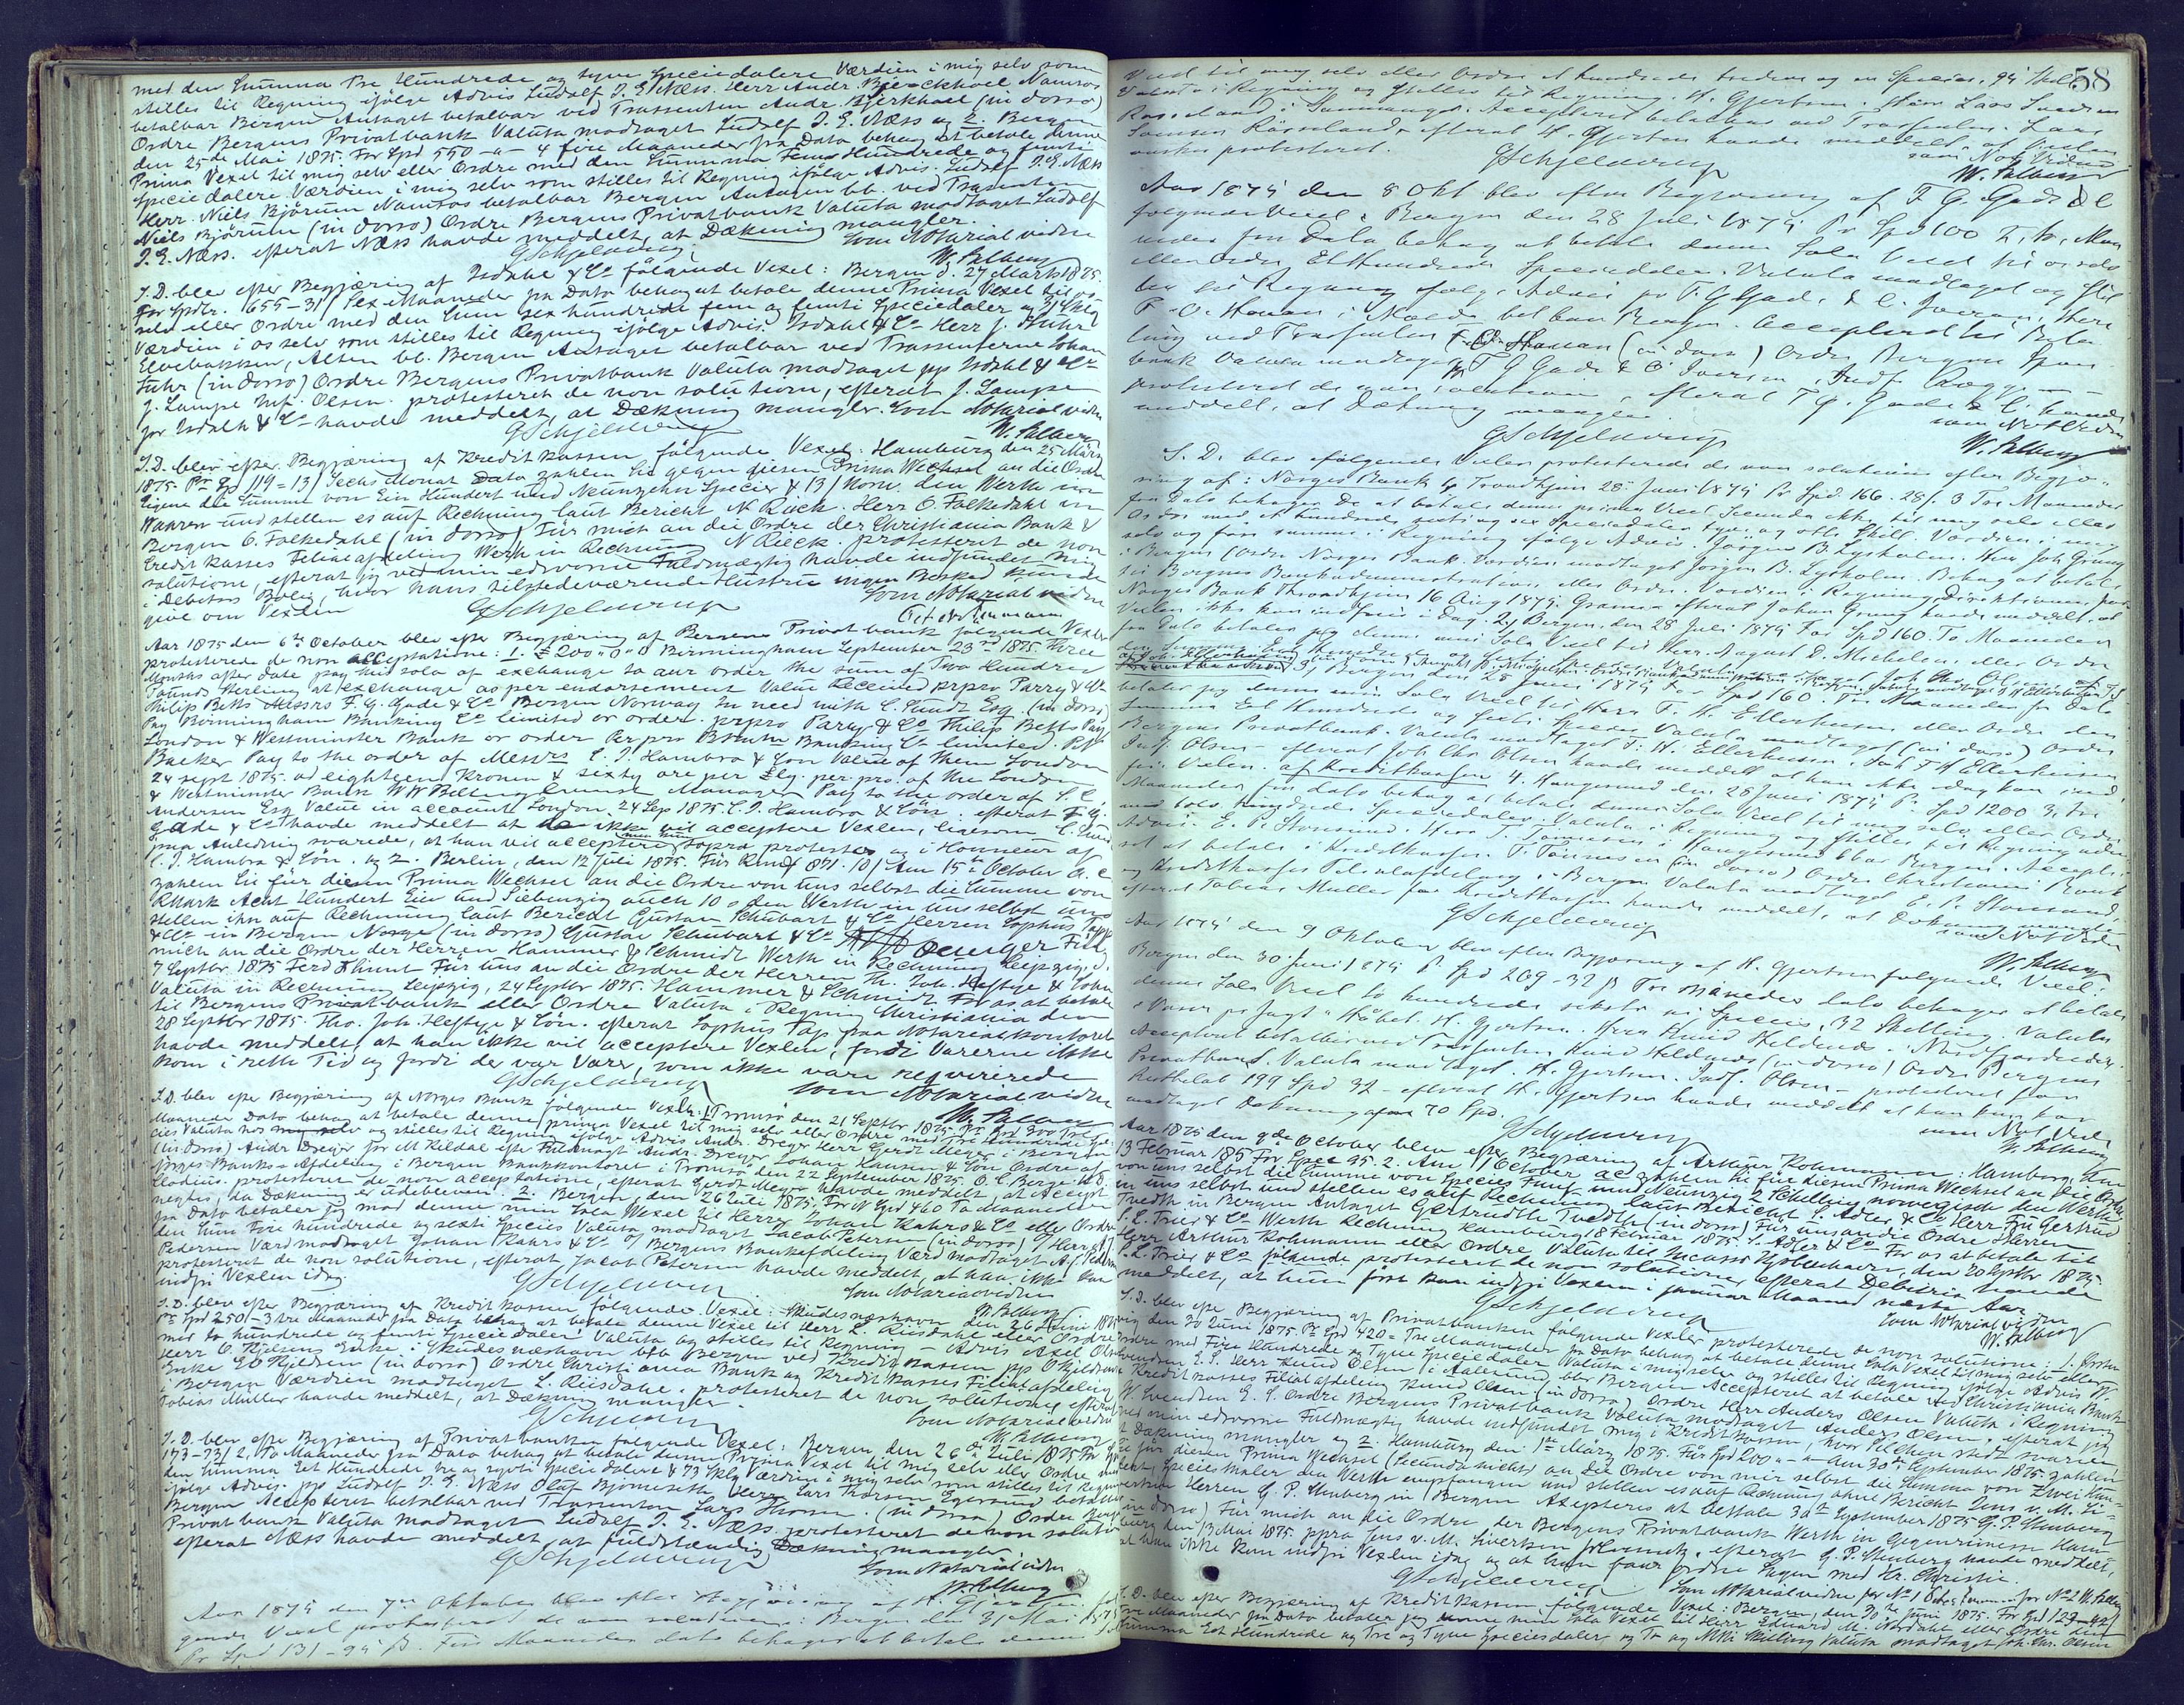 med den Summa Tre Hundrede og tyve Speciedalere Værdien i mig selv som
stilles til Regning ifølge Advis Ludolf J. E. Næss. Herr Andr. Namsos
betalbar Bergen Antaget betalbar ved Trassenten Andr. (in dorso)
Ordre Bergens Privatbank Valuta modtaget Ludolf J. E. Næss og 2. Bergen
den 25de Mai 1875. For Spd 550 - 4 fire Maaneder fra Dato behag at betale denne
Prima Vexel til mig selv eller Ordre med den Summa Fem Hundrede og femti
Speciedalere Værdien i mig selv som stilles til Regning ifølge Advis. Ludolf J. E. Næss
Herr Niels Bjørum Namsos betalbar Bergen Antagen bb. ved Trasenten
Niels Bjørum (in dorso) Ordre Bergens Privatbank Valuta modtaget Ludolf
J. E. Næss. efterat Næss havde meddelt, at Dækning mangler.
GSchjelderup Som Notarial vidne
W. Falberg
S. D. blev efter Begjæring af Isdahl & Co følgende Vexel: Bergen d. 27 Marts 1875.
For Spdr. 655-31 Sex Maaneder fra Dato behag at betale denne Prima Vexel til os
selv eller Ordre med den Sum sex hundrede fem og femti Speciedaler og 31 Skg
Værdien i os selv som stilles til Regning ifølge Advis. Isdahl & Co Herr J. Fuhr
Elvebakken, Alten bb. Bergen Antaget betalbar ved Trassenterne Johan
Fuhr (in dorso) Ordre Bergens Privatbank Valuta modtaget pp Isdahl & Co
J. Lampe Mf. Olsen. protesteret de non solutione, efterat J. Lampe
for Isdahl & Co havde meddelt, at Dækning mangler. Som Notarial vidne
GSchjelderup W. Falberg
S. D. blev efter Begjæring af Kreditkassen følgende Vexel: Hamburg den 25 März
1875. Pr Spd 119-13 Sechs Monat Dato zahlen Sie gegen diesen Prima Wechsel an die Ordre
Eigene die Summe von Ein Hundert und Neunzehn Species & 13 Norw. den Werth in
Waaren und stellen es auf Rechnung laut Bericht N Rieck. Herr O. Folkedahl in
Bergen O. Folkedahl (in dorso) Für mich an die Ordre der Christiania Bank &
Credit Kasses Filialafdeling Werth in Rechnung N Rieck. protesteret de non
solutione, efterat jeg ved min edsvorne Fuldmægtig havde indfundet mig
i Debitors Bolig, hvor hans tilstedeværende Hustru ingen Besked kunde
give om Vexlen Som Notarial vidne
GSchjelderup
Aar 1875 den 6te October blev efter Begjæring af Bergens Privatbank følgende Vexler
protesterede de non acceptatione: 1. £200 " 0 " 0 Birmingham September 23rd 1875 Three
Months after date pay this sola of exchange to our order the sum of Two Hundred
Pounds Sterling at exchange as per endorsement Value Received prpro Parry & Co
Philip Betts Messrs F. G. Gade & Co Bergen Norway In need with C. Sundt Esq. (in dorso)
Pay Birmingham Banking Co limited or order. prpro Parry & Co Philip Betts Pay
London & Westminster Bank or order Per pro Birmm Banking Co limited.
Backer Pay to the order of Messrs C. J. Hambro & Son Value of Them London
24 sept 1875. ad eighteen Kroner & sixty ore per £lg. per. pro. of the London
& Westminster Bank Manager Pay to the order of
Andersen Esq Value in account London 24 Sep 1875. C. J. Hambro & Son. efterat F. G.
Gade & Co havde meddelt at de ikke vil acceptere Vexlen, ligesom C. Sundt
paa Anledning svarede, at han vil acceptere sopra protesto og i Honneur af
C. J. Hambro & Søn. og 2. Berlin, den 12 Juli 1875. Für 871.10 Am 15ten October a. c.
zahlen Sie für diesen Prima Wechsel an die Ordre von uns selbst die Summe von
RMark Acht Hundert Ein und Siebenzig auch 10 den Werth in uns selbst und
stellen ihn auf Rechnung laut Bericht Gustav Schubart & Co Herren Sophus Pape
& Co in Bergen Norge (in dorso) Gustav Schubart & Co Für
mich an die Ordre der Herren Hammer & Schmidt Werth in Rechnung Leipzig, d.
7 Septbr 1875 Ferd Für uns an die Ordre der Herren Th. Joh. Heftye & Sohn
Valuta in Rechnung Leipzig, 24 Septbr 1875. Hammer & Schmidt For os at betale
til Bergens Privatbank eller Ordre Valuta i Regning Christiania den
28 Septbr 1875. Tho. Joh. Heftye & Søn. efterat Sophus Pape paa Notarialkontoret
havde meddelt, at han ikke vil acceptere Vexlen, fordi Varerne ikke
kom i rette Tid og fordi der var Varer, som ikke vare reqvirerede
GSchjelderup Som Notarial vidne
W. Falberg
S. D. blev efter Begjæring af Norges Bank følgende Vexler: 1. Tromsø den 21 Septbr 1875. Pr Spd 300 Tre
Maaneder Dato behag at betale denne prima Vexel til mig selv eller Ordre med Tre Hundrede Spe-
cies Valuta hos mig selv og stilles til Regning ifølge Advis Andr. Dreyer Herr Gerdt Meyer i Bergen
(in dorso) Andr Dreyer for M Kildal efter Fuldmagt Andr. Dreyer Johan Hansen & Søn Ordre af
Norges Banks Afdeling i Bergen Bankkontoret i Tromsø den 22 September 1875.
protesteret de non acceptatione, efterat Gerdt Meyer havde meddelt, at Accept
negtes, da Dækning er udebleven. 2. Bergen, den 26 Juli 1875. For Spd 460 To Maaneder
fra Dato betaler jeg mod denne min Sola Wexel til Herr Johan Rahrs & Co eller Ordre
den Sum Fire hundrede og sexti Species Valuta modtaget Jacob Petersen (in dorso)
Pedersen Værd modtaget Johan Rahrs & Co Bergens Bankafdeling Værd modtaget A. J. Pedersen
protesteret de non solutione, efterat Jacob Petersen havde meddelt, at han ikke kan
indfri Vexlen idag. Som Notarial vidne
GSchjelderup W. Falberg
S. D. blev efter Begjæring af Kreditkassen følgende Vexel: Skudesnæshavn den 26 Juni 1875
Pr Spd 250-3 tre Maaneder fra Dato behag at betale denne Vexel til Herr L. Riisdahl eller Ordre
med to hundrede og femti Speciedaler Valuta og stilles til Regning - Advis Axel Olsen
Herr O. Kjelsens Enke i Skudesnæshavn btb Bergen ved Kreditkassen
Enke (in dorso) Ordre Christiania Bank og Kreditkasses Filialafdeling
i Bergen Værdien modtaget L. Riisdahl. protesteret de non solutione, efterat
Tobias Müller havde meddelt, at Dækning mangler. Som Notarial vidne
GSchjelderup W. Falberg
S. D. blev efter Begjæring af Privatbanken følgende Vexel: Bergen, den 26de Juli 1875 Pr Spd
173-73 2, To Maaneder fra Dato behag at betale denne Prima Vexel til mig selv eller Ordre med
den Summa Eet Hundrede tre og sytti Speciedalere & 73 Skg Værdien i mig selv som stilles til Regning
ifølge Advis. pp Ludolf J. E. Næss Oluf Bjørneseth Herr Lars Thorsen Egersund betalbar
Bergen Accepteret betalbar ved Trassenten Lars Thorsen. (in dorso) Ordre Bergens
Privatbank Valuta modtaget Ludolf J. E. Næss. protesteret de non solutione
efterat Næss havde meddelt, at fuldstændig Dækning mangler
GSchjelderup Som Notarial vidne
W. Falberg
Aar 1875 den 7de Oktober blev efter Begjæring af H. Gjertsen føl-
gende Vexel protesteret de non solutione: Bergen den 31 Mai 1875
Pr Spd 131-94 β. Fire Maaneder dato behager at betale denne
58
Vexel til mig selv eller Ordre et hundrede tredeve og en Species, 94 Skill
Valuta i Regning og stilles til Regning. H. Gjertsen. Herr Lars
i Accepteret betalbar ved Trassenten. Lars
efterat H. Gjertsen havde meddelt, at Vexlen
ønskes protesteret. som Not Vidne
GSchjelderup W. Falberg
Aar 1875 den 8 Okt blev efter Begjæring af F. G. Gade & C
følgende Vexel: Bergen den 28 Juli 1875 Pr Spd 100 To Maa
neder fra Dato behag at betale denne Sola Vexel til os selv
eller Ordre Et Hundrede Speciedaler. Valuta modtaget og stil
les til Regning ifølge Advis pr F. G. Gade & C. Iversen, Herr
F. O. Hauan i Molde bet bar Bergen. Accepteret til Beta
ling ved Trassenten F. O. Hauan (in dorso) Ordre Bergens Spare
bank Valuta modtaget F G Gade & C Iversen,
protesteret de non solutione, efterat F G. Gade & C. havde
meddelt, at Dækning mangler som Not Vidne
GSchjelderup W. Falberg
S. D. blev følgende Vexler protesterede de non solutione efter Begjæ-
ring af: Norges Bank 1. Trondhjem 28. Juni 1875 Pr Spd. 166. 28 β. 3 Tre Maaneder
fra Dato behager De at betale denne prima Vexel Secunda ikke til mig selv eller
Ordre med et hundrede sexti og sex Speciedaler tyve og otte Skill. Værdien i mig
selv og føres summa i Regning ifølge Advis. Jørgen B. Lysholm. Herr Joh Grung
i Bergen (Ordre Norges Bank. Værdien modtaget Jørgen B. Lysholm. Behag at betale
til Bergens Bankadministration eller Ordre. Værdien i Regning, Direktionen for
Norges Bank Trondhjem 16 Aug 1875. efterat Johan Grung havde meddelt, at
Vexlen ikke kan indfries i Dag. 2, Bergen, den 28 Juli 1875 For Spd 160. To Maaneder
fra Dato betaler jeg denne min Sola Vexel til Herr August D. Michelsen eller Ordre
Bergen den 28 Juni 1875 Spd 160. Tre Maaneder fra Dato
betaler jeg denne min Sola Vexel til Herr F. H. Ellerhusen eller Ordre den
Summa Eet Hundrede og sexti Species Valuta modtaget (in dorso) Ordre
Bergens Privatbank. Valuta modtaget F. H. Ellerhusen. Joh F H Ellerhusen
Indf. Olsen - efterat Joh Chr Olsen havde meddelt at han ikke idag kan ind
fri Vexlen. af Kreditkassen 4. Haugesund den 28 Juni 1875 Pr. Spd 1200 3, tre
Maaneder fra dato behag at betale denne Sola Vexel til mig selv eller Ordre
med tolv hundrede Speciedaler. Valuta i Regning og stilles til Regning uden
Advis. E. P. Storesund. Herr T. Tønnesen i Haugesund bbar Bergen. Accepte-
ret at betale i Kreditkassen. T. Tønnesen (in dorso) Ordre Christiania Bank
og Kreditkasses Filialafdeling i Bergen Valuta modtaget E. P. Storesund,
efterat Tobias Müller for Kreditkassen havde meddelt, at Dækning mangler
GSchjelderup som Not Vidne
W. Falberg
Aar 1875 den 9 Oktober blev efter Begjæring af H. Gjertsen følgende Vexel:
Bergen den 30 Juni 1875 Pr Spd 269-32 β Tre Maaneder dato behager at betale
denne Sola Vexel to hundrede sekst ni Species, 32 Skilling, Valuta
i Varer pr Jagt " Haabet. H. Gjertsen. Herr Knud Hildnæs. i Nordfjordeidet
Accepteret betalbar ved Trassenten Knud Hildnæs (in dorso) Ordre Bergens
Privatbank. Valuta modtaget. H. Gjertsen. Indf. Olsen - protesteret for
Restbeløb 199 Spd 32 - efterat H. Gjertsen havde meddelt at han kun har
modtaget Dækning for 70 Spd. som Not Vidne
GSchjelderup W. Falberg
Aar 1875 den 9de October blev efter Begjæring af Arthur Kohmann: Hamborg den
13 Februar 1875 For Spec 95. 2. Am 1 October ac zahlen Sie für diesen Prima Wechsel an die Ordre
von uns selbst die Summe von Species Fünf und Neunzig 2 Schilling norwegisch den Werth
in uns selbst und stellen es auf Rechnung laut Bericht S. Adler & Co Herr Frü Gertrud
Tvedth in Bergen Antaget Gjertrudth Tvedth (in dorso) Für uns an die Ordre Herren
S. E. Trier & Co Werth Rechnung Hamburg 18 Februar 1875 S. Adler & Co For os at betale til
Herr Arthur Kohmann eller Ordre, Valuta til Incasso Kjøbenhavn, den 20 Septbr 1875.
S. E. Trier & Co følgende protesteret de non solutione, efterat Debitrix havde
meddelt, at hun først kan indfri Vexlen i Januar Maaned næste Aar
GSchjelderup Som Notarial vidne
W. Falberg
S. D. blev efter Begjæring af Privatbanken følgende Vexler protesterede de non solutione: 1. Ørsten
vig den 20 Juni 1875. Pr Spd 420 = Tre Maaneder fra Dato behag at betale denne Sola Vexel til mig selv eller
Ordre med Fire Hundrede og Tyve Speciedaler Valuta i mig selv og stilles til Regning ifølge Advis W.
Svendsen E. S. Herr Knud Olsen i Aalesund bbr Bergen Accepteret at betale ved Christiania Bank
& Kreditkasses Filialafdeling Knud Olsen (in dorso) Ordre Herr Anders Olsen Valuta i Regning
W. Svendsen E. S. Ordre Bergens Privatbank Valuta modtaget Anders Olsen. efterat jeg
ved min edsvorne Fuldmægtig havde indfundet mig i Kreditkassen, hvor blev svaret
at Dækning mangler og 2. Hamburg den 1te März 1875. Für Spd 200 " - " den 30te September 1875. zahlen
Sie für diesen Prima Wechsel (Secunda nicht) an die Ordre von mir selbst die Summa von Zwei Hun-
dert Speciesthaler den Werth empfangen und stellen es auf Rechnung ohne Bericht Jens v. M. Si-
vertsen Herren G. P. Stenberg in Bergen Axepteres at bettale 30te September 1875 G. P. Stenberg
(in dorso) Für mich an die Ordre der Bergens Privatbank Werth in Gegenrimesse Ham-
burg den 13 Mai 1875. ppra Jens v. M. Sivertsen efterat G. P. Stenberg havde meddelt,
at han ikke kan indfri Vexlen idag og at han faar ordne Sagen med Hr. Christie.
GSchjelderup Som Notarial vidne for No 1 for No 2 W. Falberg
S. D. blev efter Begjæring af Kreditkassen følgende Vexel: Bergen, den 30te Juni 1875. For Spd 123-42
tre Maaneder fra Dato betaler jeg denne min Sola Vexel til Herr Eduard M. Nordahl eller Ordre den
Summa Eet Hundrede og Tre og Tyve Speciesdaler og To og Skilling Valuta modtaget Joh. Chr. Olsen